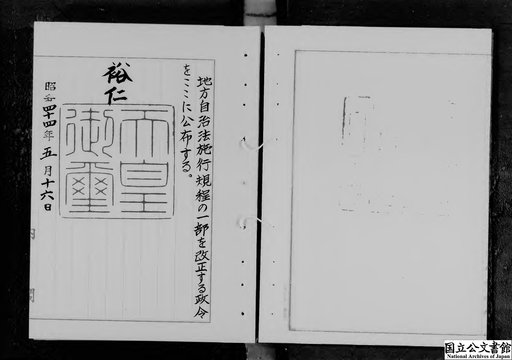 地方自治法施行規程の一部を改正する政令
をここに公布する。
裕仁
天皇
御璽
昭和四十四年五月十六日
内閣
国立公文書館
National Archives of Japan